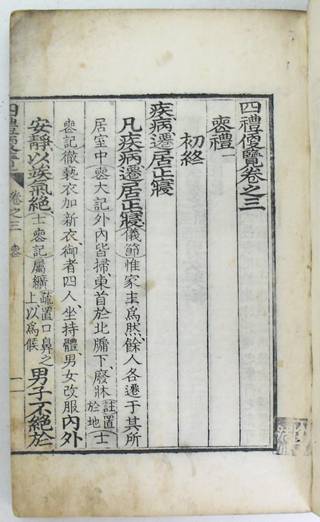 四禮便覽卷之三
喪禮一
初終
疾病遷居正寢
凡疾病遷居正寢儀節惟家主爲然餘人各遷于其所
居室中喪大記外內皆掃東首於北牖下廢牀註置於地士
喪記徹褻衣加新衣御者四人坐持體男女改服內外
安靜以竢氣絶士喪記屬纊疏置口鼻之上以爲候男子不絶於
四禮便覽 卷之三 喪 一